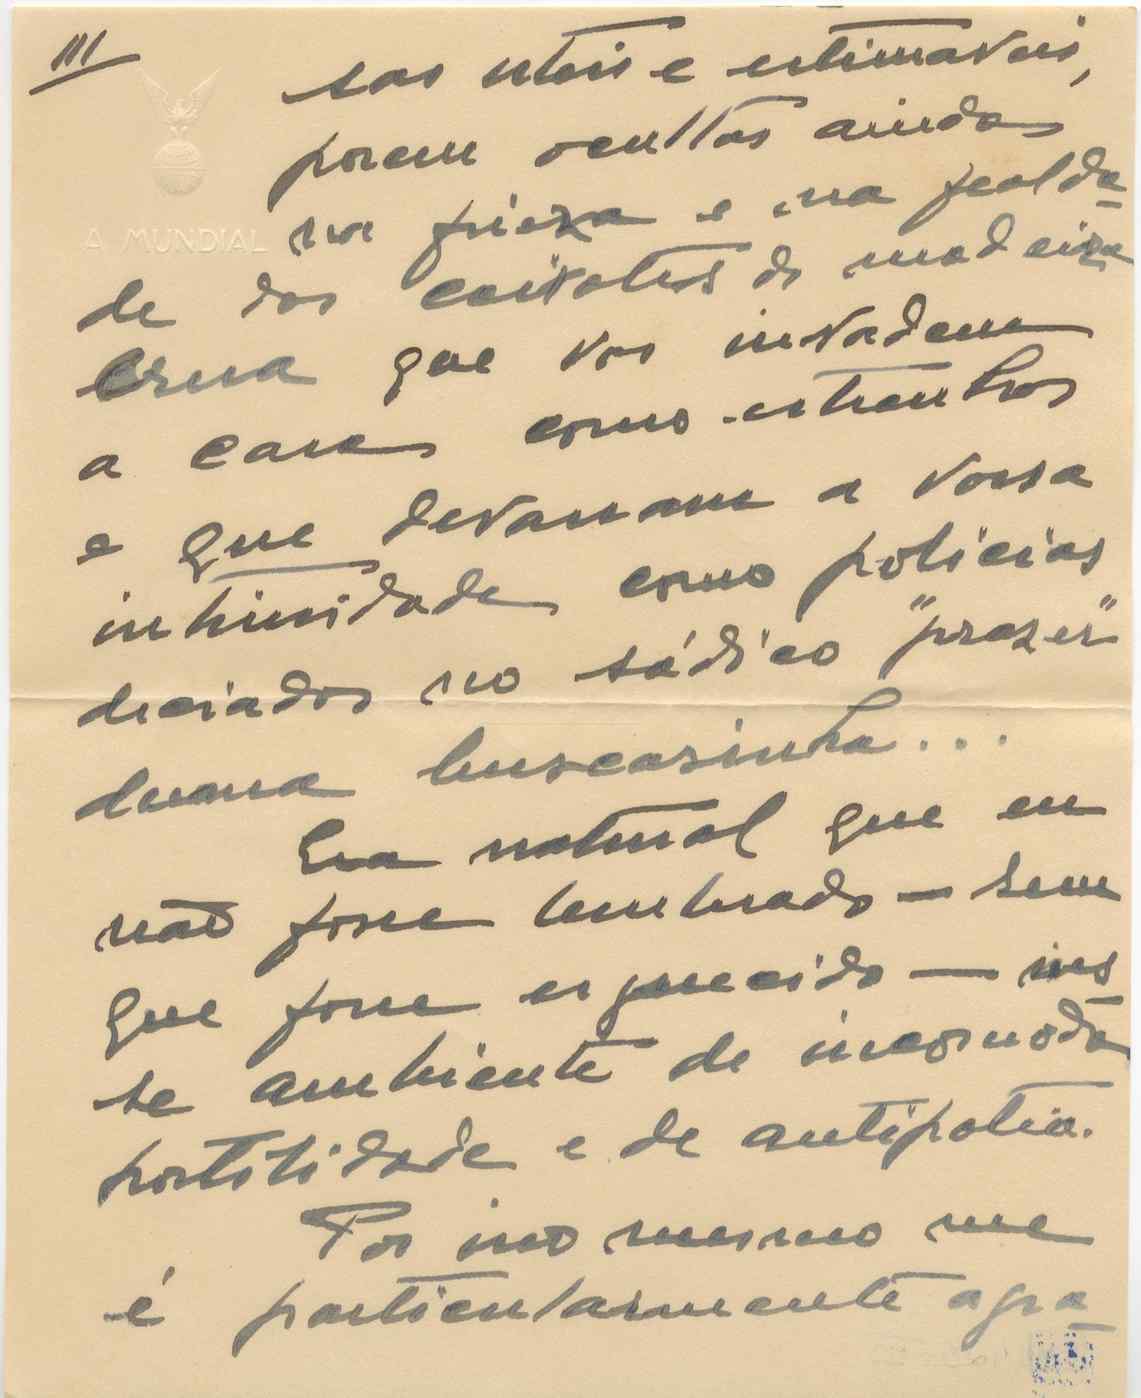 III
A MUNDIAL
sas uteis e estimaveis,
porem ocultas ainda
na frieza e na fealda-
de dos caixotes de madeira
crua que vos invadem
a casa como estranhos
e que devassam a vossa
intimidade como policias
deciados no sádico "prazer"
duma buscasinha...
Era natural que eu
não fosse lembrado — sem
que fosse esquecido — nes
se ambiente de incomoda
hostilidade e de antipatia.
Por isso mesmo me
é particularmente agra-